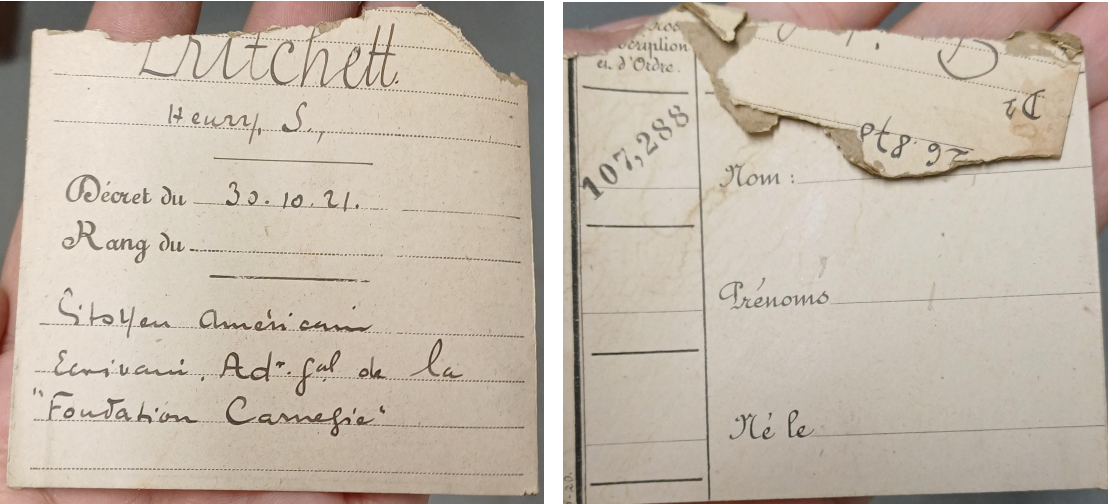 Pritchett.
Henry, S.,
Décret du 30.10.21.
Rang du
Citoyen Américain
Ecrivain. Adr. Gal de la
"Fondation Carnegie"
cription
et d'Ordre.
107,288
Nom :
Prénoms
Né le